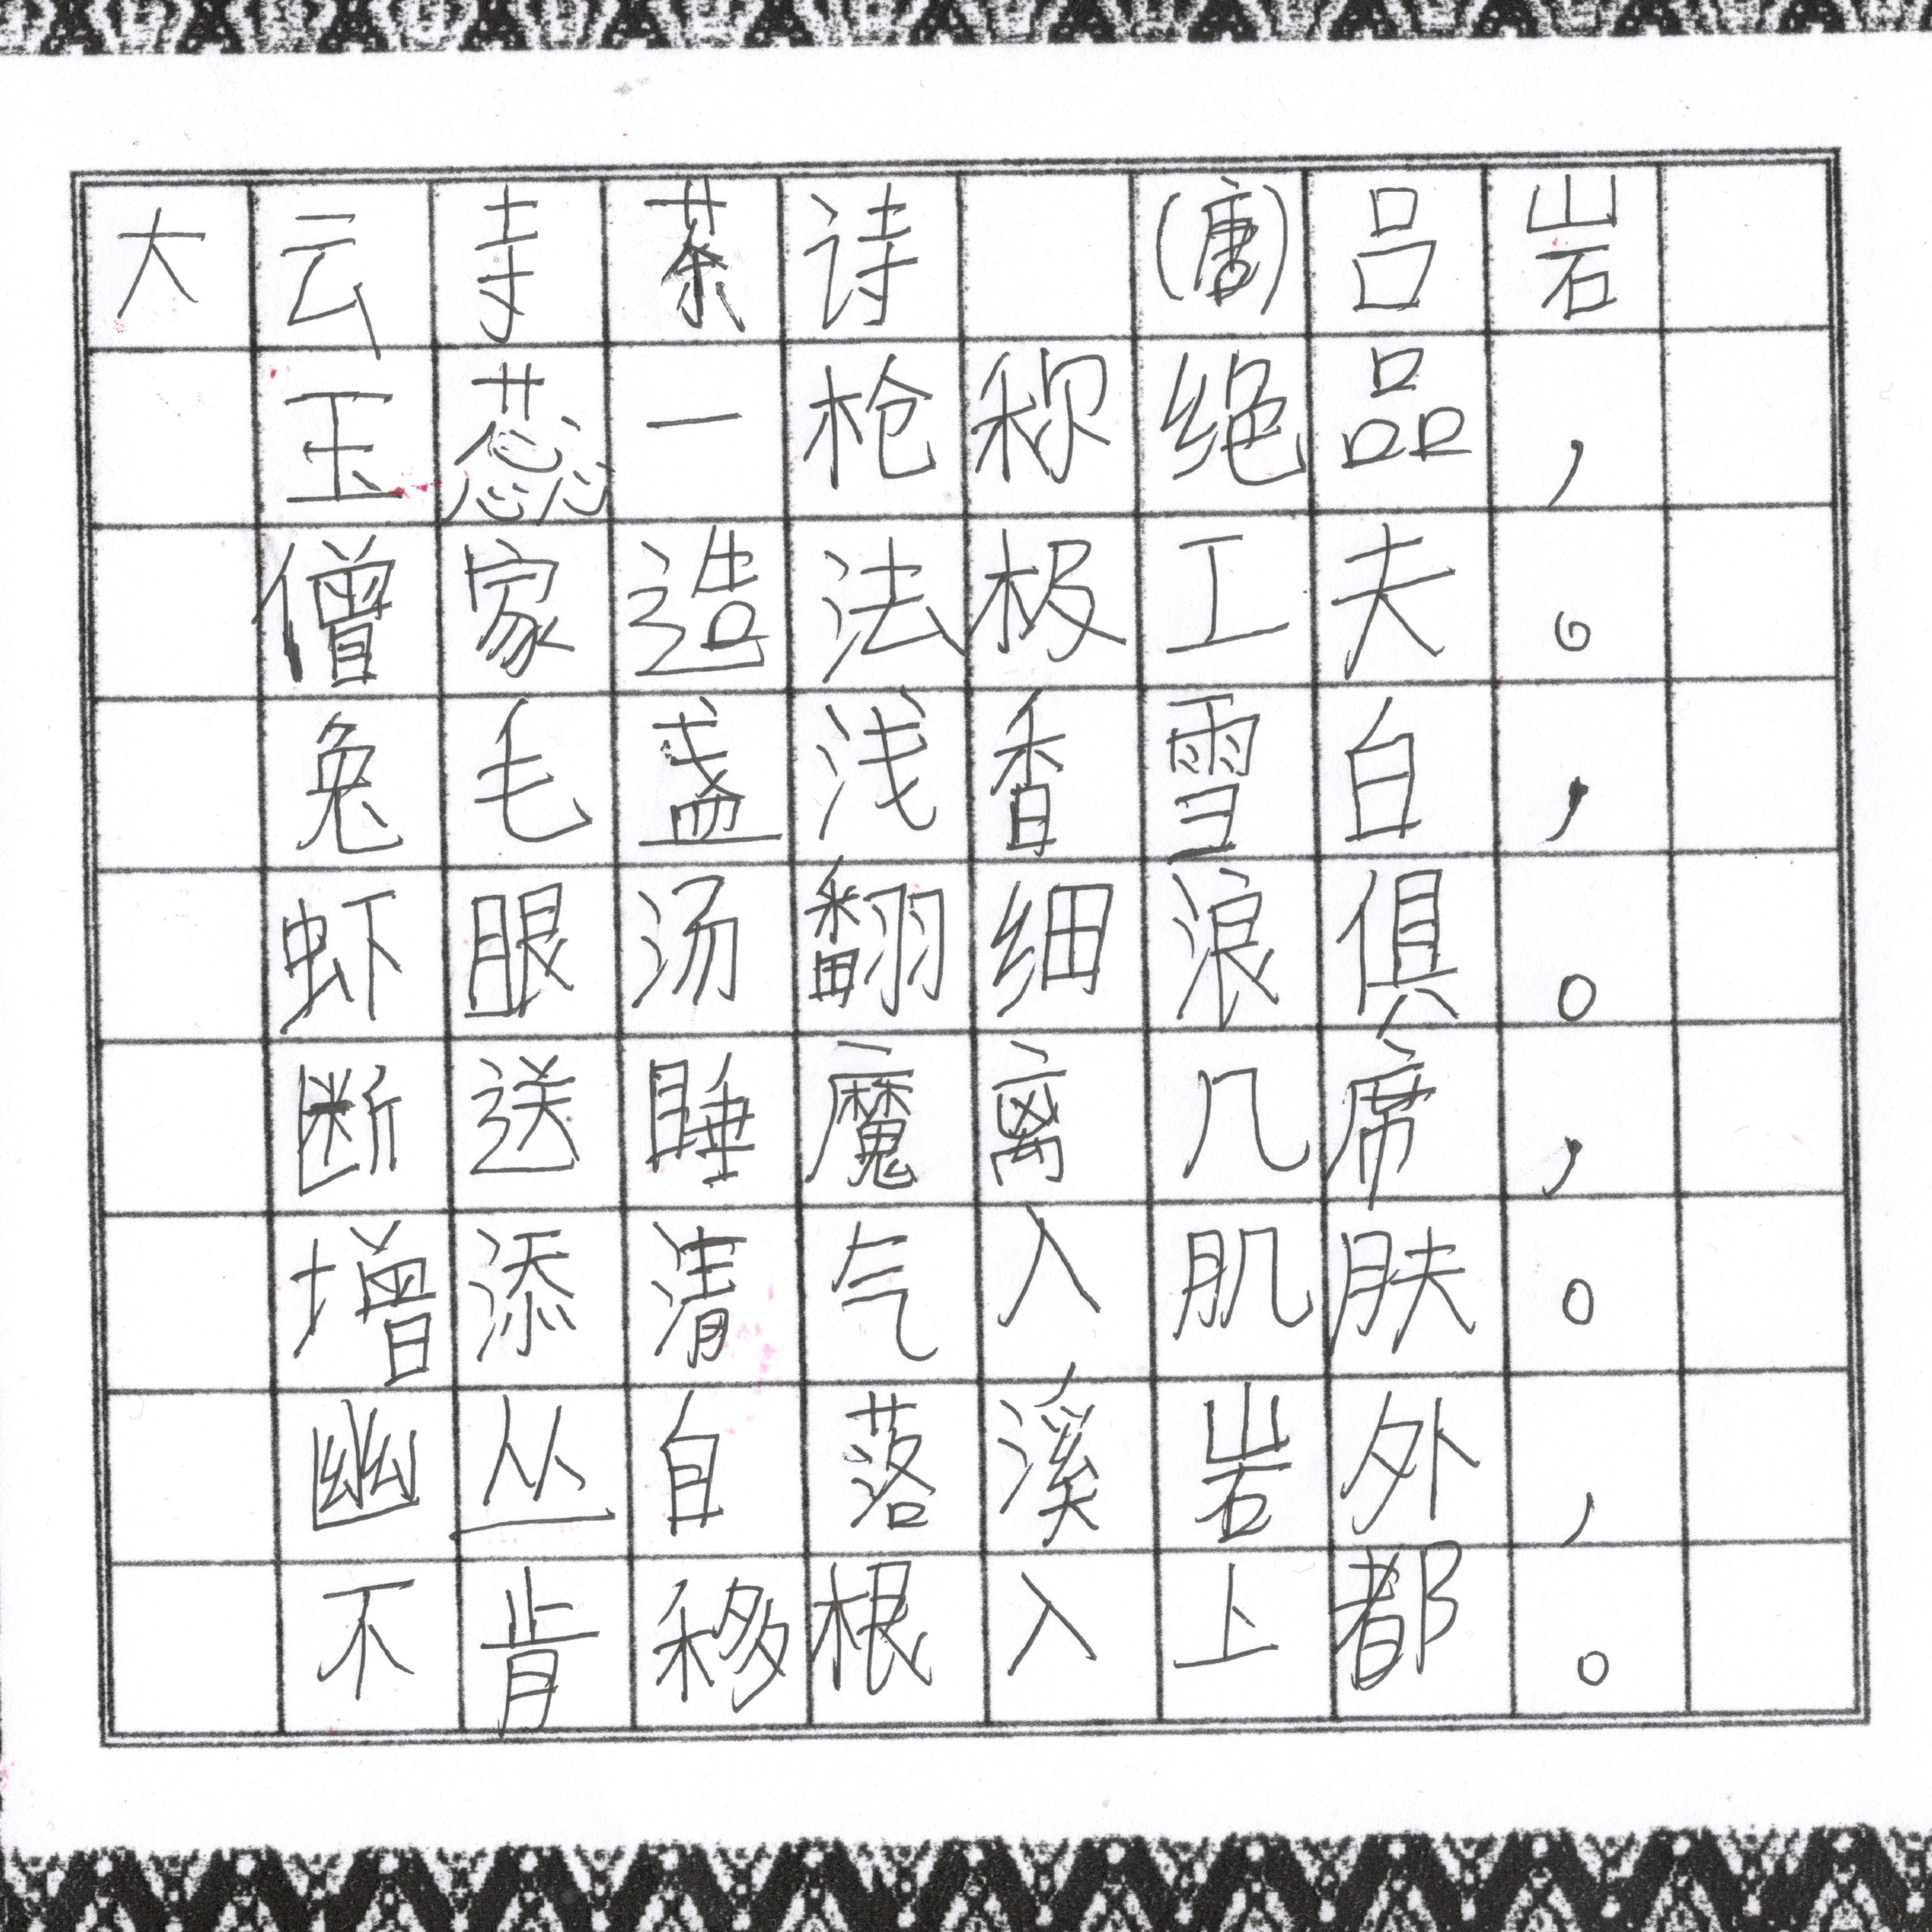 大云寺茶诗 (唐)吕岩
玉蕊一枪称绝品，
僧家造法极工夫。
兔毛盏浅香雪白，
虾眼汤翻细浪俱。
断送睡魔离几席，
增添清气入肌肤。
幽丛自落溪岩外，
不肯移根入上都。